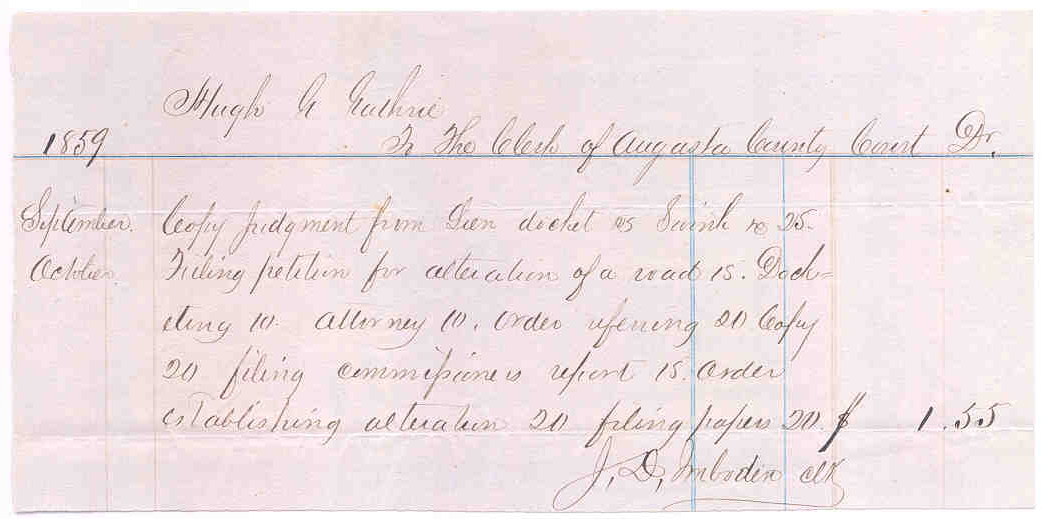 Hugh G Guthrie
1859 To The Clerk of Augusta County Court Dr.
September. Copy judgment from Lien docket vs Swink 25.
October Filing petition for alteration of a road 15. Dock=
eting 10. Attorney 10. Order refering 20 Copy
20 filing commissioners report 15. Order
establishing alteration 20 filing papers 20. $ 1.55
J. D, Imboden clk